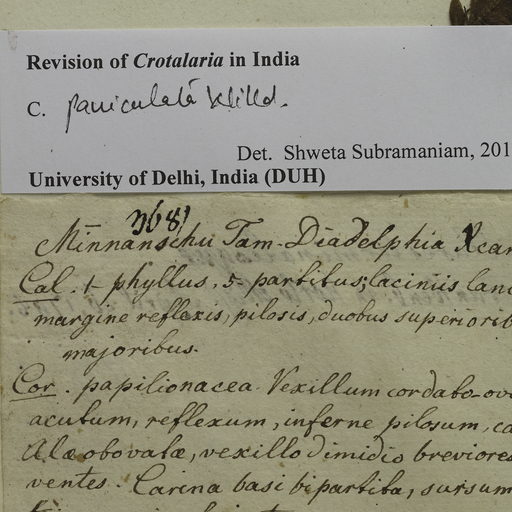 Revision of Crotalaria in India
C. paniculata Willd.
Det. Shweta Subramaniam, 201
University of Delhi, India (DUH)
3681
Minnanschu Tam. Diadelphia
Cal. 1-phyllus, 5 partitus; laciniis lanc
margine reflexis, pilosis, duobus superiorib
majoribus.
Cor. papilionacea. Vexillum cordato-ova
acutum, reflexum, inferne pilosum, ca
Alæ obovatæ, vexillo dimidio breviores
ventes. Carina basi bipartita, sursum